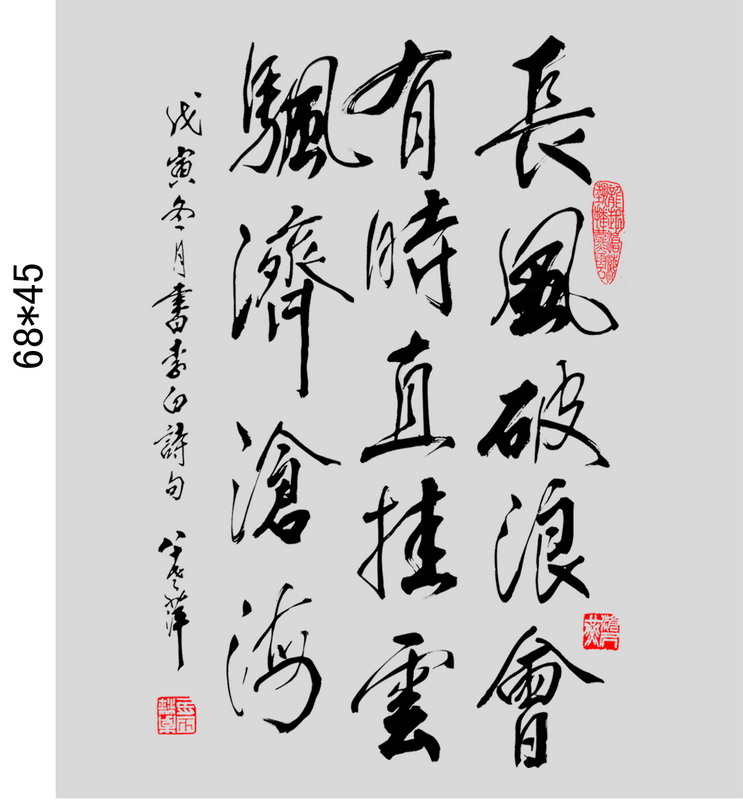 長風破浪會
有時直挂雲
颿濟滄海
戊寅冬月書李白詩句
68*45